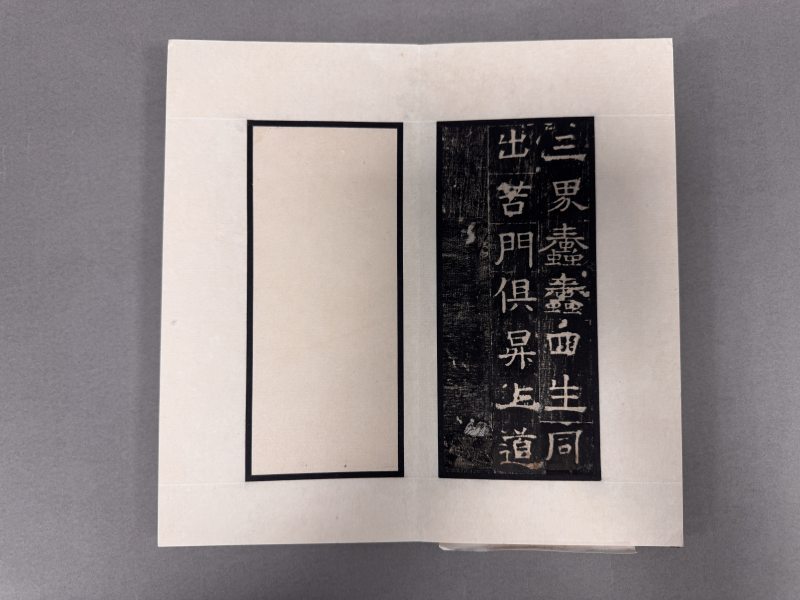 三界蠢蠢四生同
出苦門俱昇上道